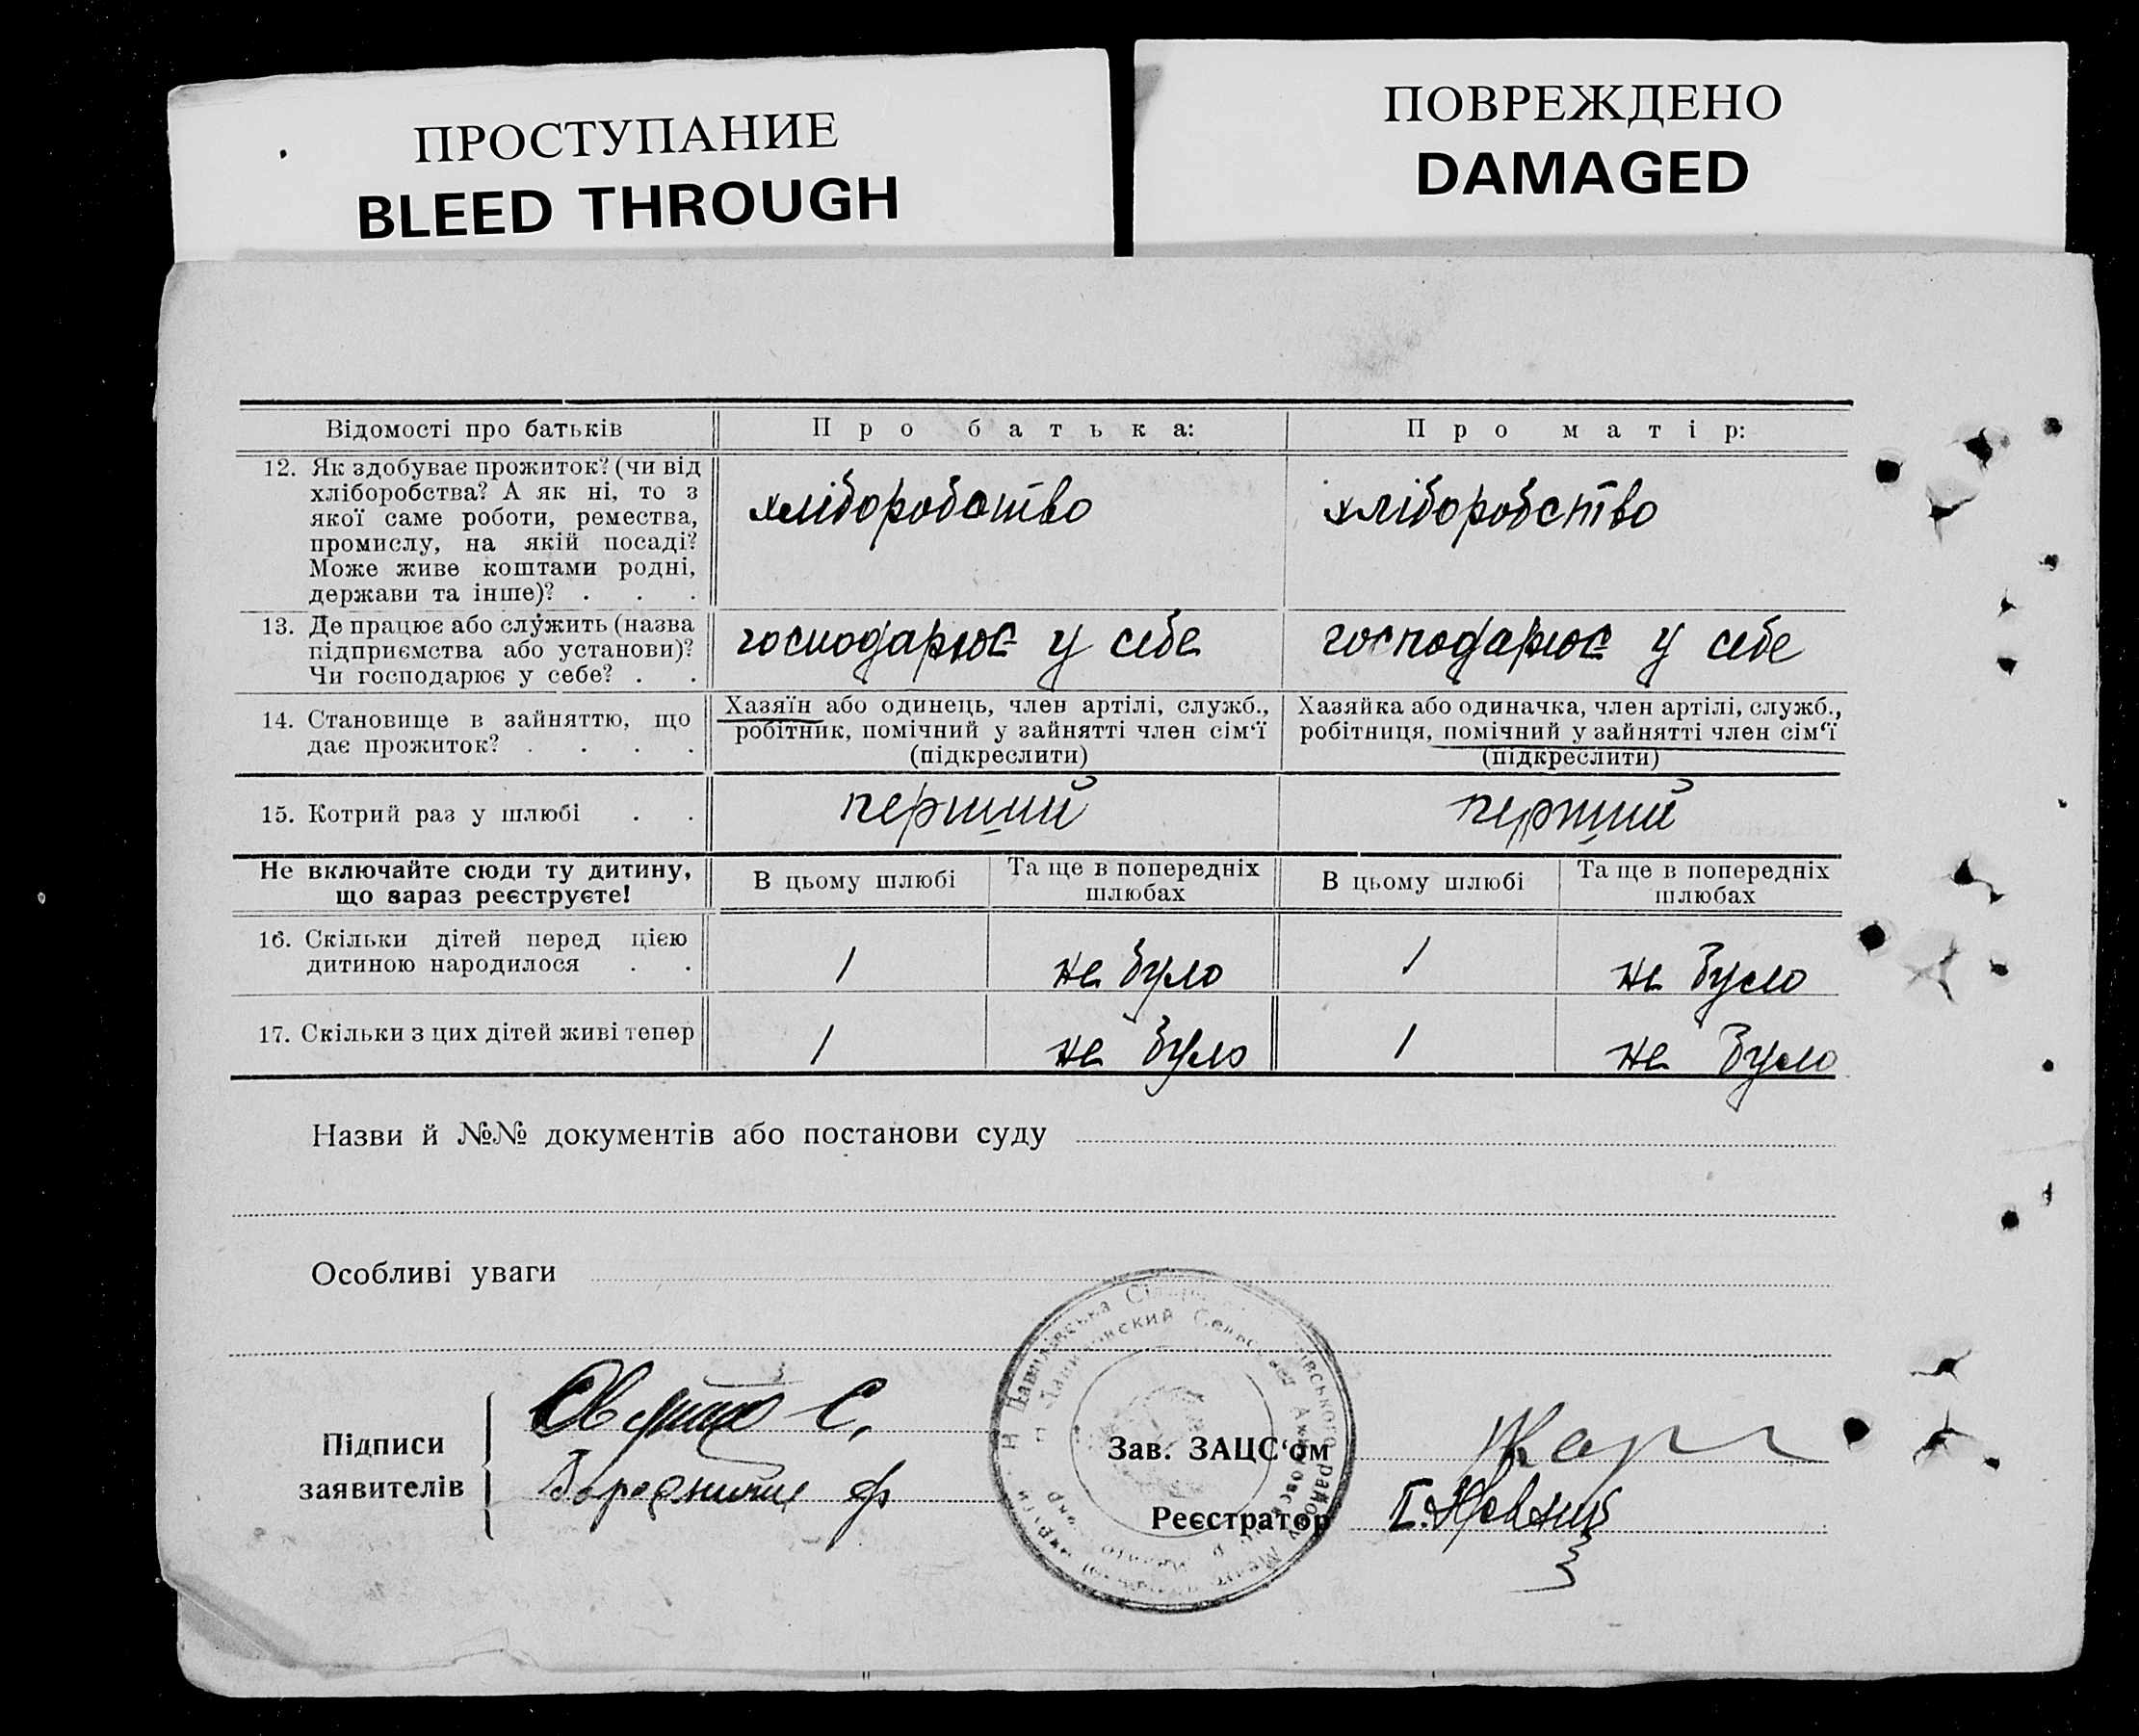 ПРОСТУПАНИЕ
BLEED THROUGH
ПОВРЕЖДЕНО
DAMAGED
Відомості про батьків
Про батька:
Про матір:
12. Як здобуває прожиток? (чи від
хліборобства? А як ні, то з
якої саме роботи, ремества,
промислу, на якій посаді?
Може живе коштами родні,
держави та інше)? . . .
хліборобство
хліборобство
13. Де працює або служить (назва
підприємства або установи)?
Чи господарює у себе? . .
господарює у себе
господарює у себе
14. Становище в зайняттю, що
дає прожиток? . . . .
Хазяїн або одинець, член артілі, служб.,
робітник, помічний у зайнятті член сім‘ї
(підкреслити)
Хазяйка або одиначка, член артілі, служб.,
робітниця, помічний у зайнятті член сім‘ї
(підкреслити)
15. Котрий раз у шлюбі . .
перший
перший
Не включайте сюди ту дитину,
що зараз реєструєте!
В цьому шлюбі
Та ще в попередніх
шлюбах
В цьому шлюбі
Та ще в попередніх
шлюбах
16. Скільки дітей перед цією
дитиною народилося . .
1
не було
1
не було
17. Скільки з цих дітей живі тепер
1
не було
1
не було
Назви й №№ документів або постанови суду
Особливі уваги
Підписи
заявителів
С.
ф
Зав. ЗАЦС‘ом
Реєстратор